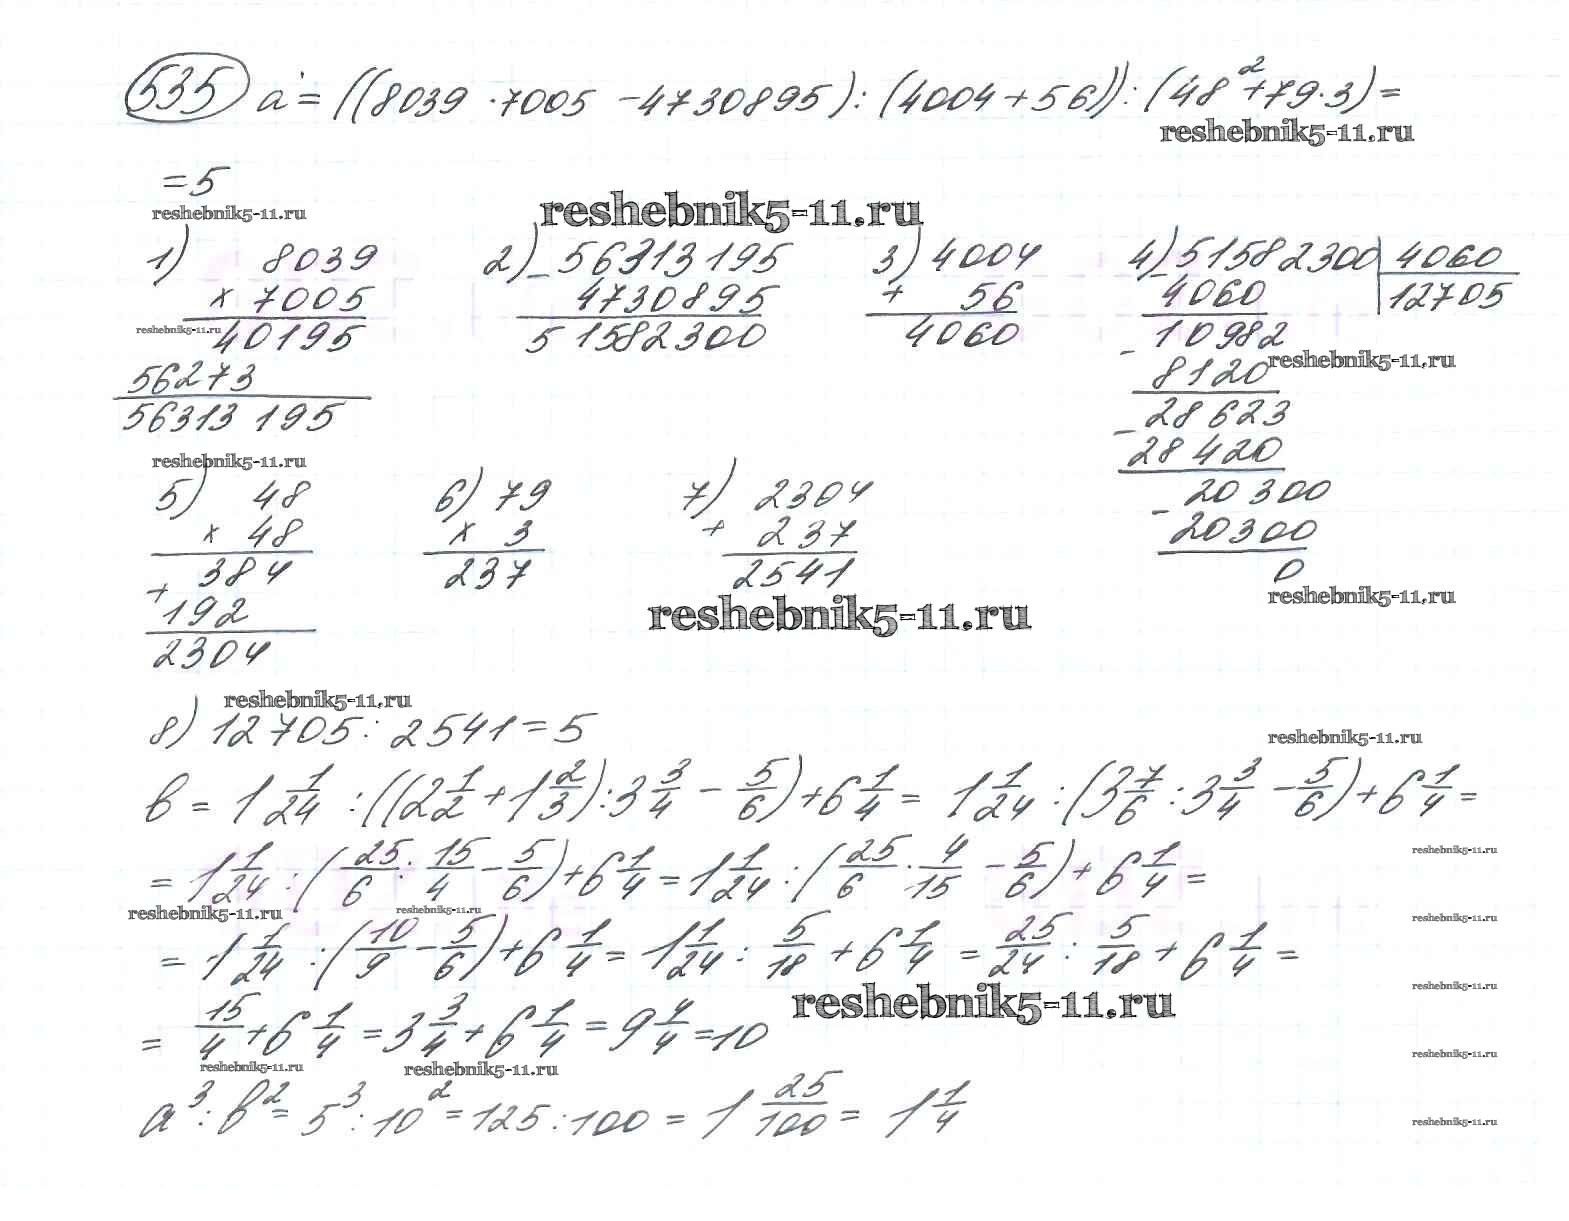 535 a = ((8039 · 7005 - 4730895) : (4004 + 56)) : (48² + 79 · 3) =
reshebnik5-11.ru
= 5
reshebnik5-11.ru
reshebnik5-11.ru
1) 8039
× 7005
reshebnik5-11.ru
40195
56273
56313195
2) - 56313195
4730895
51582300
3) 4004
+ 56
4060
4) 51582300 | 4060
- 4060 | 12705
10982
reshebnik5-11.ru
- 8120
28623
- 28420
20300
- 20300
0
reshebnik5-11.ru
reshebnik5-11.ru
5) 48
× 48
384
+ 192
2304
6) 79
× 3
237
7) 2304
+ 237
2541
reshebnik5-11.ru
reshebnik5-11.ru
8) 12705 : 2541 = 5
reshebnik5-11.ru
b = 1 1/24 : ((2 1/2 + 1 2/3) : 3 3/4 - 5/6) + 6 1/4 = 1 1/24 : (3 7/6 : 3 3/4 - 5/6) + 6 1/4 =
= 1 1/24 : (25/6 : 15/4 - 5/6) + 6 1/4 = 1 1/24 : (25/6 · 4/15 - 5/6) + 6 1/4 =
reshebnik5-11.ru
reshebnik5-11.ru
reshebnik5-11.ru
reshebnik5-11.ru
= 1 1/24 : (10/9 - 5/6) + 6 1/4 = 1 1/24 : 5/18 + 6 1/4 = 25/24 : 5/18 + 6 1/4 =
reshebnik5-11.ru
reshebnik5-11.ru
= 15/4 + 6 1/4 = 3 3/4 + 6 1/4 = 9 4/4 = 10
reshebnik5-11.ru
reshebnik5-11.ru
reshebnik5-11.ru
a³ : b² = 5³ : 10² = 125 : 100 = 1 25/100 = 1 1/4
reshebnik5-11.ru